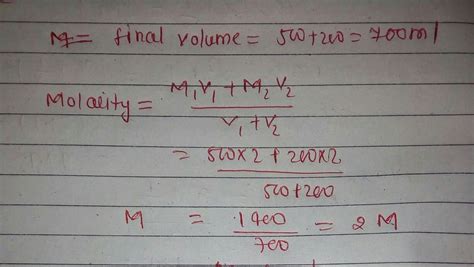 M= final volume = 500+200 = 700ml
Molarity = M₁V₁ + M₂V₂
V₁ + V₂
= 500×2 + 200×2
500+200
M = 1400 = 2 M
700